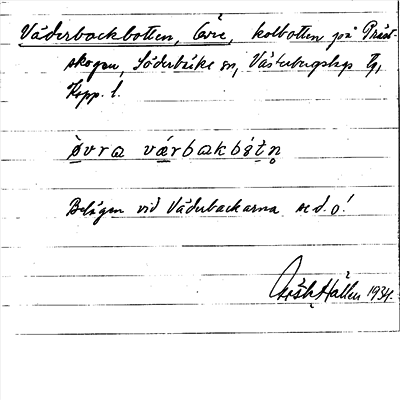 Väderbackbotten, Övre, kolbotten på Präst-
skogen, Söderbärke sn, Västerbergslags Tg,
Kopp. l.
övra værbakbåtn̥
Belägen vid Väderbackarna se d. o!
Hállen 1934.